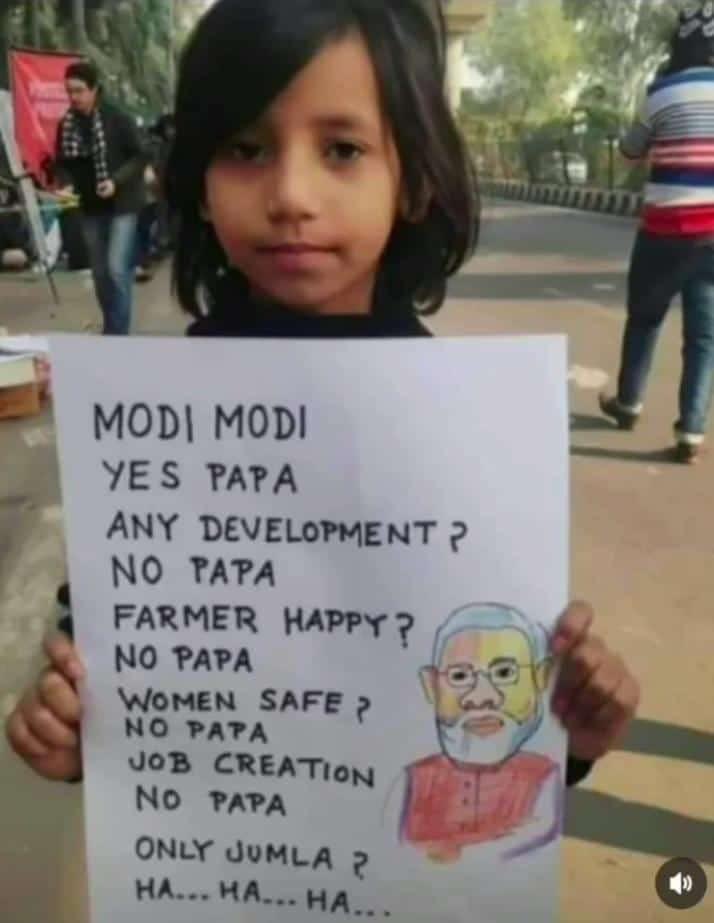 MODI MODI
YES PAPA
ANY DEVELOPMENT?
NO PAPA
FARMER HAPPY?
NO PAPA
WOMEN SAFE?
NO PAPA
JOB CREATION
NO PAPA
ONLY JUMLA?
HA... HA... HA...